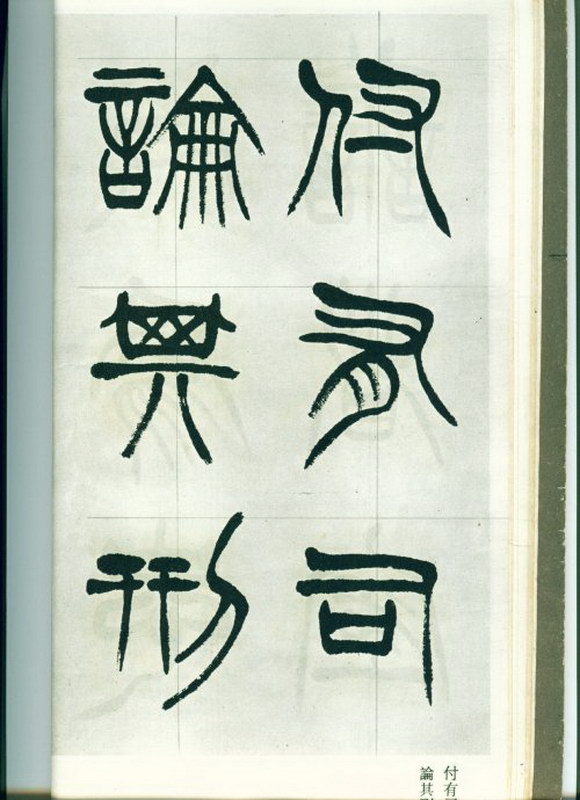 付有司
論其刑
付有
論其